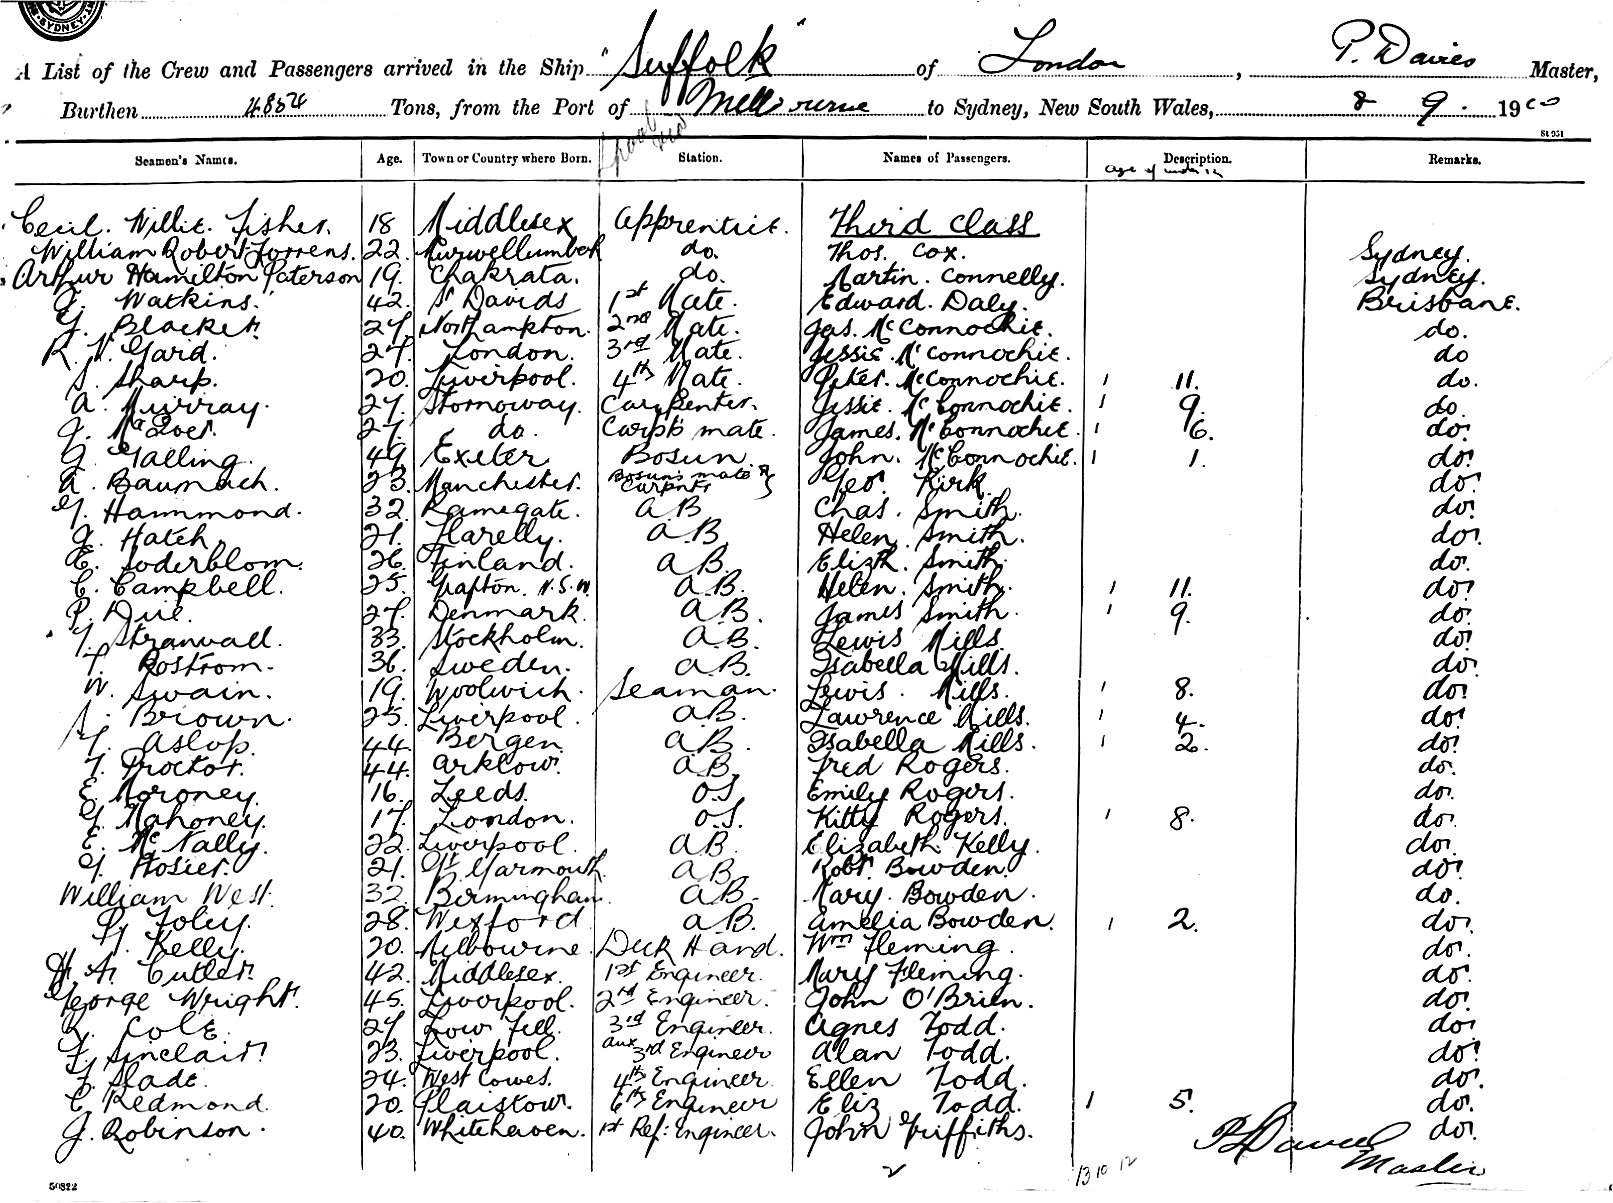 SYDNEY
A List of the Crew and Passengers arrived in the Ship "Suffolk" of London, P. Davies Master,
Burthen 4834 Tons, from the Port of Melbourne to Sydney, New South Wales, 8 9. 1900
St 951
Seamen's Names. Age. Town or Country where Born. Station. Names of Passengers. Description. Remarks.
age if under 12
Cecil. Willie. Fisher. 18 Middlesex Apprentice. Third Class
William Robert Torrens. 22. Murwellumbah do. Thos. Cox. Sydney.
Arthur Hamilton Paterson 19. Chakrata. do. Martin. Connelly. Sydney.
J. Watkins. 42. St Davids 1st Mate. Edward. Daly. Brisbane.
J. Blacket. 27. Northampton. 2nd Mate. Jas. McConnochie. do.
R. N. Gard. 27. London. 3rd Mate. Jessie. McConnochie. do
S. Sharp. 20. Liverpool. 4th Mate. Peter. McConnochie. 1 11. do.
A. Murray. 27. Stornoway. Carpenter. Jessie. McConnochie. 1 9. do.
J. McIver. 27. do. Carptr's mate. James. McConnochie. 1 6. do.
G. Galling. 49 Exeter Bosun John. McConnochie. 1 1. do.
A. Baumach. 23. Manchester. Bosun's mate & Carpntr Geo. Kirk. do.
G. Hammond. 32. Ramsgate. A B Chas. Smith. do.
J. Hatch. 21. Llanelly. A B. Helen. Smith. do.
E. Soderblom. 26. Finland. A B. Elizth. Smith. do.
C. Campbell. 25. Grafton. N.S.W. A. B. Helen. Smith. 1 11. do.
P. Due. 27. Denmark. A B. James Smith. 1 9. do.
Stranvall. 33. Stockholm. A. B. Lewis Mills. do.
Rostrom. 36. Sweden. A. B. Isabella Mills. do.
W. Swain. 19. Woolwich. Seaman. Lewis. Mills. 1 8. do.
Brown. 25. Liverpool. A B. Lawrence Mills. 1 4. do.
T. Aslop. 44. Bergen A B. Isabella Mills. 1 2. do.
T. Proctor. 44. Arklow. A B. Fred Rogers. do.
E. Moroney. 16. Leeds. O.S Emily Rogers. do.
G. Mahoney. 17. London. O.S. Kitty Rogers. 1 8. do.
E. McNally. 22. Liverpool. A B. Elizabeth Kelly. do.
G. Hosier. 21. Gt Yarmouth. A B. Robt. Bowden. do.
William West. 32. Birmingham. A B. Mary. Bowden. do.
P. Foley. 28. Wexford. A. B. Amelia Bowden. 1 2. do.
Kelly. 20. Melbourne. Deck Hand. Wm Fleming. do.
H. A. Cutler. 42. Middlesex. 1st Engineer. Mary Fleming. do.
George Wright. 45. Liverpool. 2nd Engineer. John O'Brien. do.
Cole. 27 Low Fell. 3rd Engineer. Agnes Todd. do.
F. Sinclair. 23. Liverpool. aux 3rd Engineer Alan Todd. do.
F. Slade. 24. West Cowes. 4th Engineer. Ellen Todd. do.
C. Redmond. 20. Plaistow. 6th Engineer Eliz Todd. 1 5. do.
J. Robinson. 40. Whitehaven. 1st Ref: Engineer. John Griffiths. do.
P Davies
Master
2 13 10 12
50822